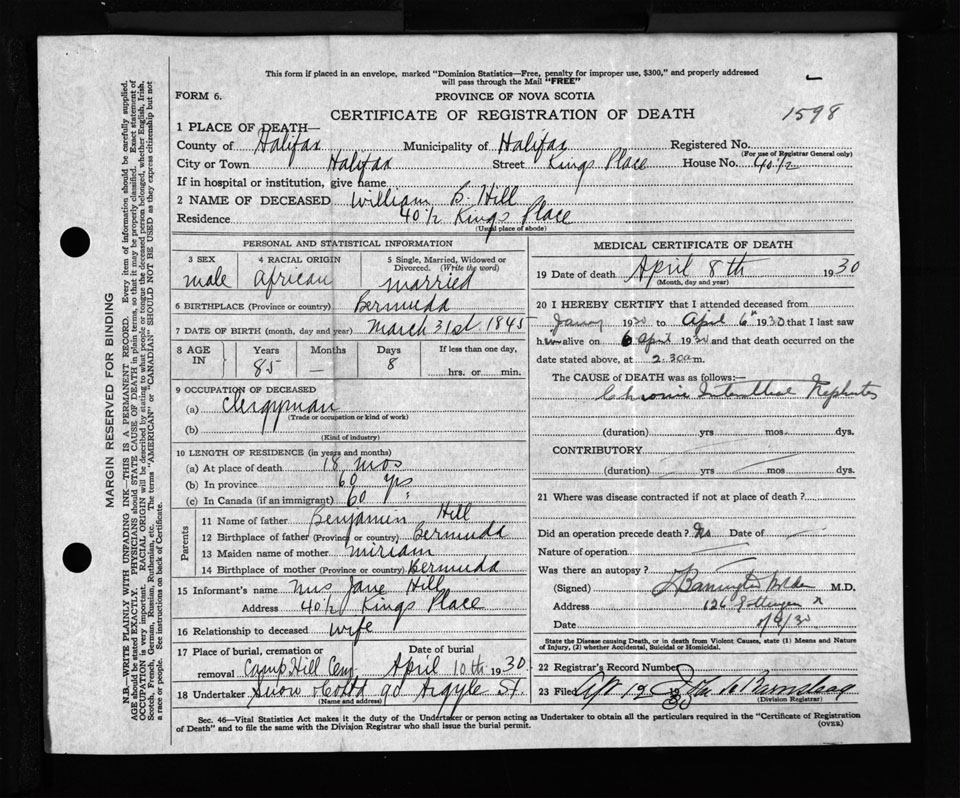 This form if placed in an envelope, marked "Dominion Statistics—Free, penalty for improper use, $300," and properly addressed
will pass through the Mail "FREE"
FORM 6.
PROVINCE OF NOVA SCOTIA
CERTIFICATE OF REGISTRATION OF DEATH
1598
1 PLACE OF DEATH—
County of Halifax Municipality of Halifax Registered No.
(For use of Registrar General only)
City or Town Halifax Street Kings Place House No. 40 1/2
If in hospital or institution, give name
2 NAME OF DECEASED William B. Hill
Residence 40 1/2 Kings Place
(Usual place of abode)
PERSONAL AND STATISTICAL INFORMATION
3 SEX male
4 RACIAL ORIGIN African
5 Single, Married, Widowed or Divorced. (Write the word) married
6 BIRTHPLACE (Province or country) Bermuda
7 DATE OF BIRTH (month, day and year) March 31st 1845
8 AGE IN Years 85 Months — Days 8 If less than one day, hrs. or min.
9 OCCUPATION OF DECEASED
(a) Clergyman
(Trade or occupation or kind of work)
(b)
(Kind of industry)
10 LENGTH OF RESIDENCE (in years and months)
(a) At place of death 18 mos
(b) In province 60 yrs
(c) In Canada (if an immigrant) 60 "
Parents
11 Name of father Benjamin Hill
12 Birthplace of father (Province or country) Bermuda
13 Maiden name of mother Miriam
14 Birthplace of mother (Province or country) Bermuda
15 Informant's name Mrs Jane Hill
Address 40 1/2 Kings Place
16 Relationship to deceased Wife
17 Place of burial, cremation or removal Camp Hill Cem Date of burial April 10th 1930
18 Undertaker Snow & Co Ltd 90 Argyle St.
(Name and address)
MEDICAL CERTIFICATE OF DEATH
19 Date of death April 8th 1930
(Month, day and year)
20 I HEREBY CERTIFY that I attended deceased from
1930 to April 6th 1930 that I last saw
him alive on 6 April 1930 and that death occurred on the
date stated above, at 2.30 a m.
The CAUSE of DEATH was as follows:—
Chronic Interstitial Nephritis
(duration) yrs mos dys.
CONTRIBUTORY
(duration) yrs mos dys.
21 Where was disease contracted if not at place of death?
Did an operation precede death? No Date of
Nature of operation
Was there an autopsy?
(Signed) M.D.
Address 126
Date /30
State the Disease causing Death, or in death from Violent Causes, state (1) Means and Nature
of Injury, (2) whether Accidental, Suicidal or Homicidal.
22 Registrar's Record Number
23 Filed 30
(Division Registrar)
Sec. 46—Vital Statistics Act makes it the duty of the Undertaker or person acting as Undertaker to obtain all the particulars required in the "Certificate of Registration
of Death" and to file the same with the Division Registrar who shall issue the burial permit.
(OVER)
MARGIN RESERVED FOR BINDING
N.B.—WRITE PLAINLY WITH UNFADING INK—THIS IS A PERMANENT RECORD. Every item of information should be carefully supplied.
AGE should be stated EXACTLY. PHYSICIANS should STATE CAUSE OF DEATH in plain terms, so that it may be properly classified. Exact statement of
OCCUPATION is very important. RACIAL ORIGIN will be described by stating to what people or tongue the deceased person belonged, whether English, Irish,
Scotch French, German, Russian, Ruthenian, etc. The terms "AMERICAN" or "CANADIAN" SHOULD NOT BE USED as they express citizenship but not
a race or people. See instructions on back of Certificate.